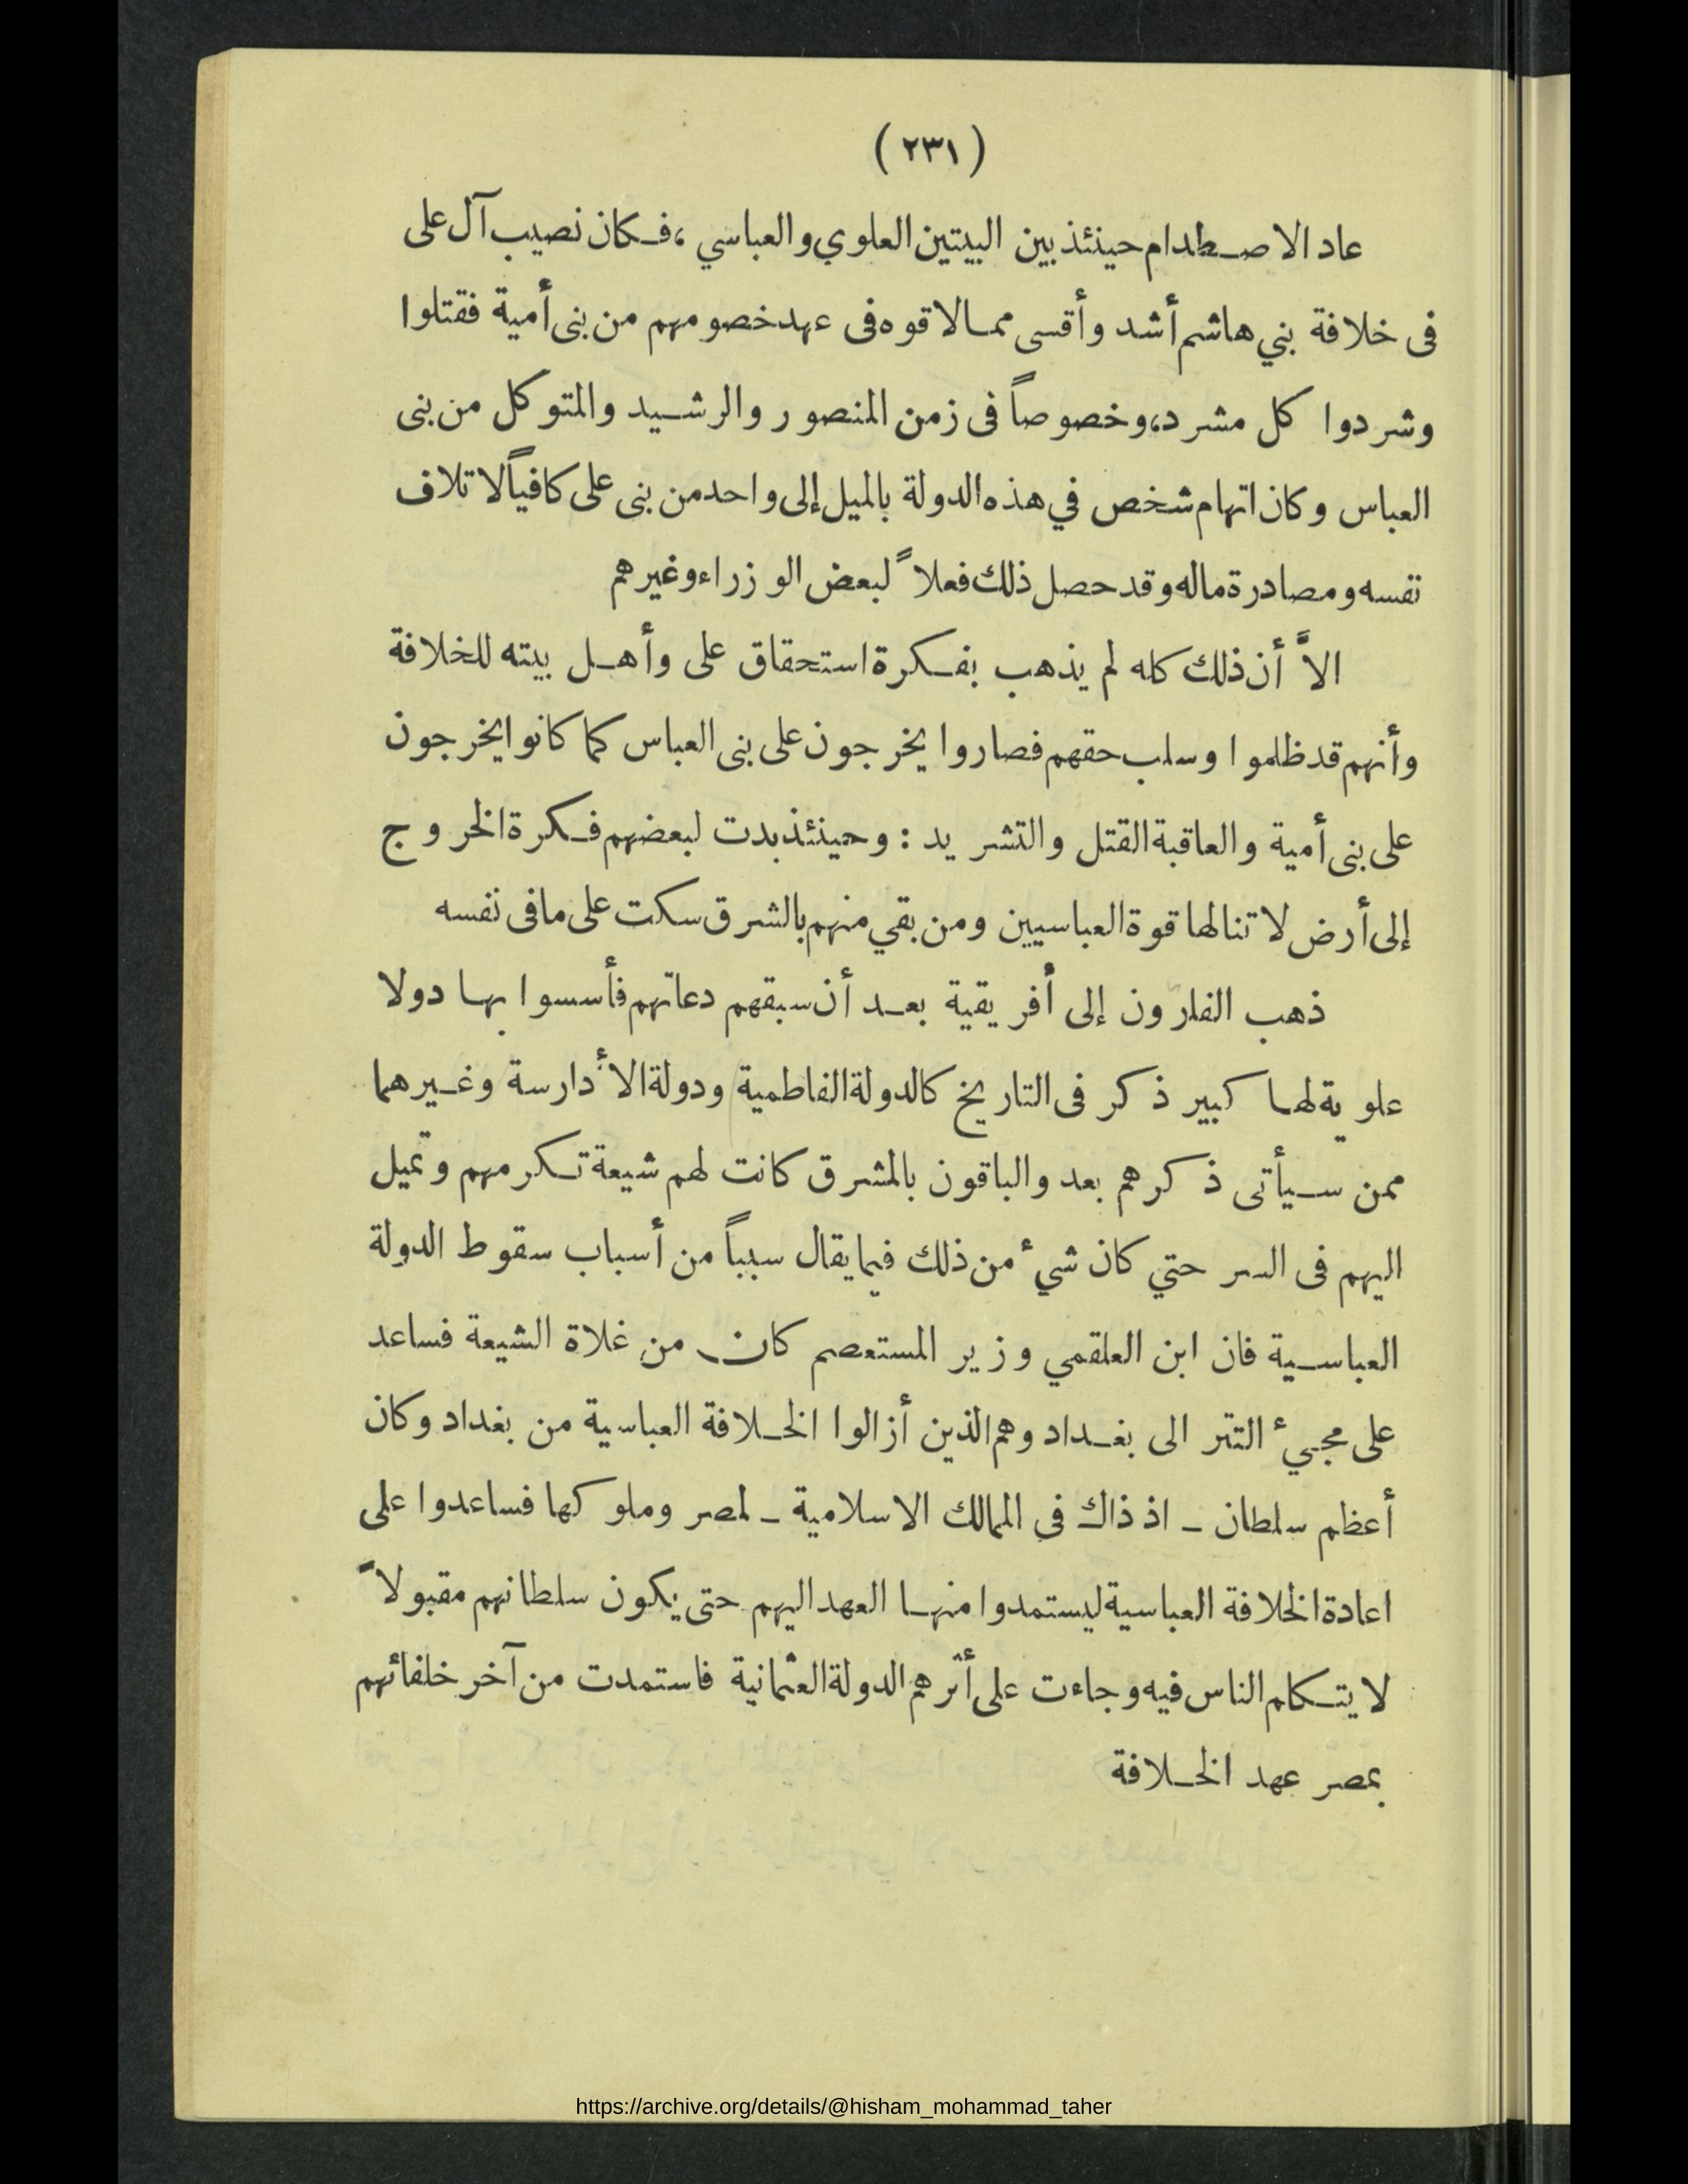 ( ٢٣١ )
عاد الاصطدام حينئذ بين البيتين العلوي والعباسي ، فكان نصيب آل على
فى خلافة بني هاشم أشد وأقسى مما لاقوه فى عهد خصومهم من بنى أمية فقتلوا
وشردوا كل مشرد، وخصوصاً فى زمن المنصور والرشيد والمتوكل من بنى
العباس وكان اتهام شخص في هذه الدولة بالميل إلى واحد من بنى على كافياً لاتلاف
نفسه ومصادرة ماله وقد حصل ذلك فعلاً لبعض الوزراء وغيرهم
الاَّ أن ذلك كله لم يذهب بفكرة استحقاق على وأهل بيته للخلافة
وأنهم قد ظلموا وسلب حقهم فصاروا يخرجون على بنى العباس كما كانوا يخرجون
على بنى أمية والعاقبة القتل والتشريد : وحينئذ بدت لبعضهم فكرة الخروج
إلى أرض لا تنالها قوة العباسيين ومن بقي منهم بالشرق سكت على ما فى نفسه
ذهب الفارون إلى أفريقية بعد أن سبقهم دعاتهم فأسسوا بها دولا
علوية لها كبير ذكر فى التاريخ كالدولة الفاطمية ودولة الأدارسة وغيرهما
ممن سيأتى ذكرهم بعد والباقون بالمشرق كانت لهم شيعة تكرمهم وتميل
اليهم فى السر حتي كان شيء من ذلك فيما يقال سبباً من أسباب سقوط الدولة
العباسية فان ابن العلقمي وزير المستعصم كان من غلاة الشيعة فساعد
على مجيء التتر الى بغداد وهم الذين أزالوا الخلافة العباسية من بغداد وكان
أعظم سلطان ــ اذ ذاك فى الممالك الاسلامية ــ لمصر وملوكها فساعدوا على
اعادة الخلافة العباسية ليستمدوا منها العهد اليهم حتى يكون سلطانهم مقبولاً
لا يتكلم الناس فيه وجاءت على أثرهم الدولة العثمانية فاستمدت من آخر خلفائهم
بمصر عهد الخلافة
https://archive.org/details/@hisham_mohammad_taher